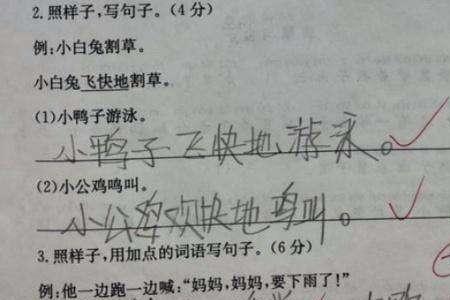 2.照样子,写句子。(4分)
例:小白兔割草。
小白兔飞快地割草。
(1)小鸭子游泳。
小鸭子飞快地游泳。
(2)小公鸡鸣叫。
小公鸡欢快地鸣叫。
3.照样子,用加点的词语写句子。(6分)
例:他一边跑一边喊:“妈妈,妈妈,要下雨了!”